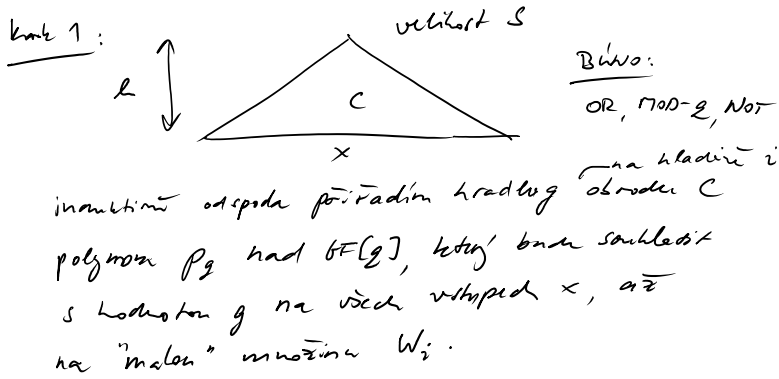 Krok 1:
velikost S
BÚNO:
OR, MOD-q, NOT
h
C
x
na hladině i
induktivně odspoda přiřadím hradlu g obvodu C
polynom Pg nad GF[q], který bude souhlasit
s hodnotou g na všech vstupech x, až
na "malou" množinu Wi.